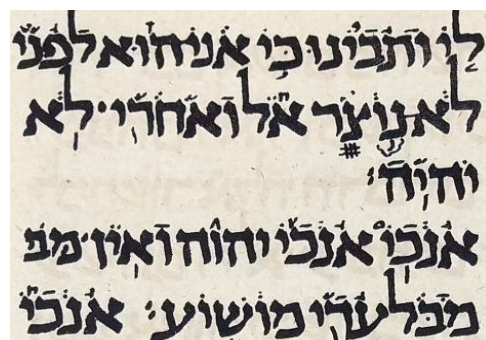 לי ותבינו כי אני הוא לפני
לא נוצר אל ואחרי לא
יהיה׃
אנכי אנכי יהוה ואין מב
מבלעדי מושיע׃ אנכי